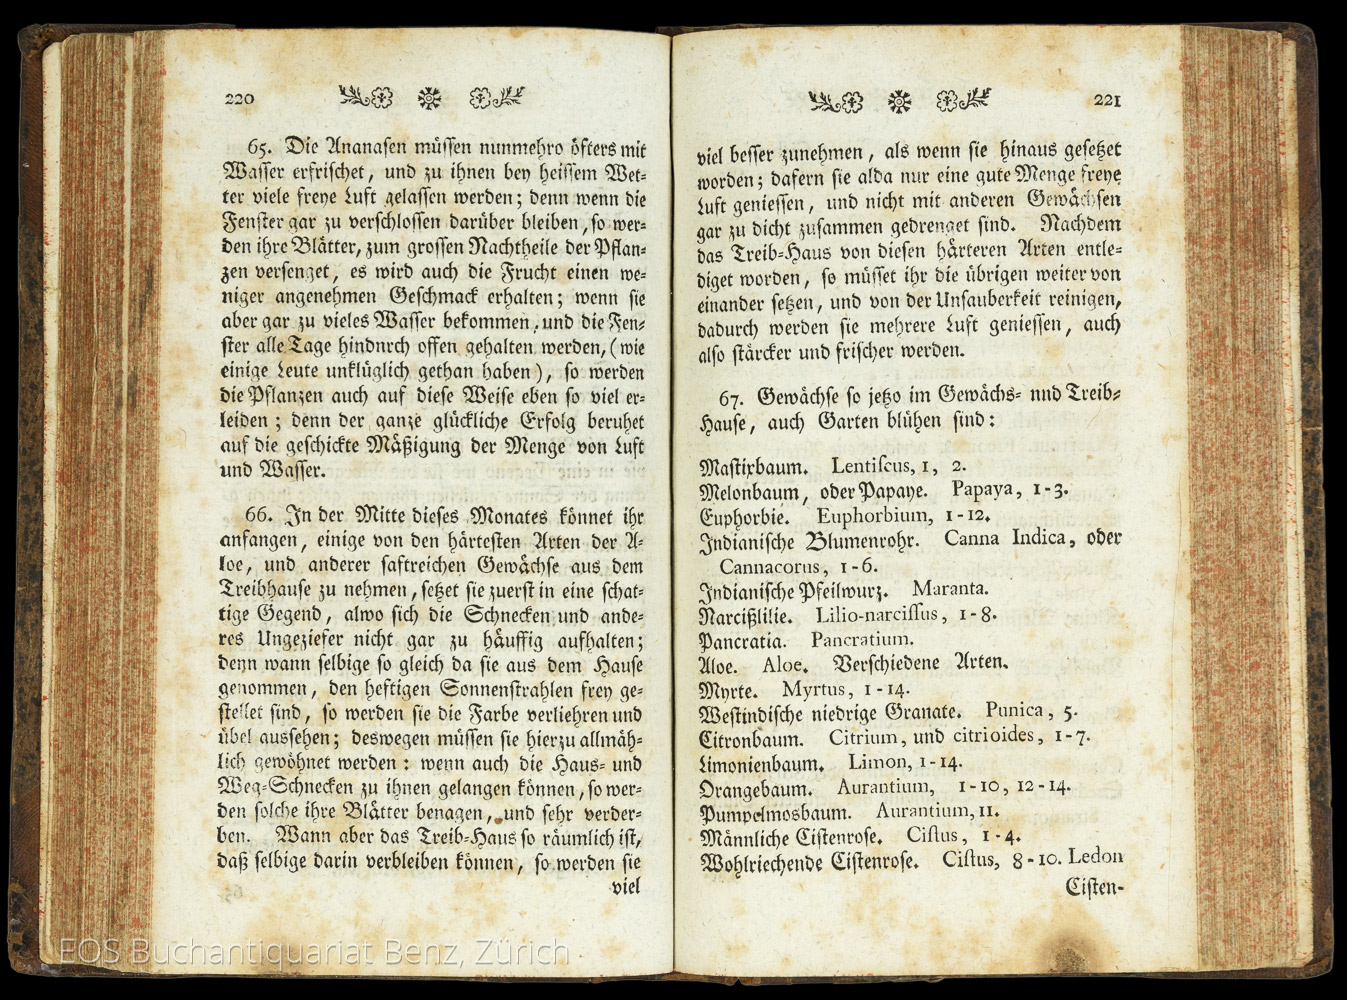 220
65. Die Ananasen müssen nunmehro öfters mit
Wasser erfrischet, und zu ihnen bey heissem Wet-
ter viele freye Luft gelassen werden; denn wenn die
Fenster gar zu verschlossen darüber bleiben, so wer-
den ihre Blätter, zum grossen Nachtheile der Pflan-
zen versenget, es wird auch die Frucht einen we-
niger angenehmen Geschmack erhalten; wenn sie
aber gar zu vieles Wasser bekommen, und die Fen-
ster alle Tage hindnrch offen gehalten werden, (wie
einige Leute unklüglich gethan haben), so werden
die Pflanzen auch auf diese Weise eben so viel er-
leiden; denn der ganze glückliche Erfolg beruhet
auf die geschickte Mäßigung der Menge von Luft
und Wasser.
66. In der Mitte dieses Monates könnet ihr
anfangen, einige von den härtesten Arten der A-
loe, und anderer saftreichen Gewächse aus dem
Treibhause zu nehmen, setzet sie zuerst in eine schat-
tige Gegend, alwo sich die Schnecken und ande-
res Ungeziefer nicht gar zu häuffig aufhalten;
denn wann selbige so gleich da sie aus dem Hause
genommen, den heftigen Sonnenstrahlen frey ge-
stellet sind, so werden sie die Farbe verliehren und
übel aussehen; deswegen müssen sie hierzu allmäh-
lich gewöhnet werden: wenn auch die Haus- und
Weg-Schnecken zu ihnen gelangen können, so wer-
den solche ihre Blätter benagen, und sehr verder-
ben. Wann aber das Treib-Haus so räumlich ist,
daß selbige darin verbleiben können, so werden sie
viel
221
viel besser zunehmen, als wenn sie hinaus gesetzet
worden; dafern sie alda nur eine gute Menge freye
Luft geniessen, und nicht mit anderen Gewächsen
gar zu dicht zusammen gedrenget sind. Nachdem
das Treib-Haus von diesen härteren Arten entle-
diget worden, so müsset ihr die übrigen weiter von
einander setzen, und von der Unsauberkeit reinigen,
dadurch werden sie mehrere Luft geniessen, auch
also stärcker und frischer werden.
67. Gewächse so jetzo im Gewächs- nnd Treib-
Hause, auch Garten blühen sind:
Mastixbaum. Lentiscus, 1, 2.
Melonbaum, oder Papaye. Papaya, 1-3.
Euphorbie. Euphorbium, 1-12.
Indianische Blumenrohr. Canna Indica, oder
Cannacorus, 1-6.
Indianische Pfeilwurz. Maranta.
Narcißlilie. Lilio-narcissus, 1-8.
Pancratia. Pancratium.
Aloe. Aloe. Verschiedene Arten.
Myrte. Myrtus, 1-14.
Westindische niedrige Granate. Punica, 5.
Citronbaum. Citrium, und citrioides, 1-7.
Limonienbaum. Limon, 1-14.
Orangebaum. Aurantium, 1-10, 12-14.
Pumpelmosbaum. Aurantium, 11.
Männliche Cistenrose. Cistus, 1-4.
Wohlriechende Cistenrose. Cistus, 8-10. Ledon
Cisten-
EOS Buchantiquariat Benz, Zürich